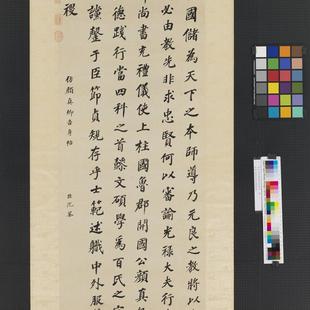 國儲為天下之本師導乃元良之教將以
必由教先非求忠賢何以審諭光祿大夫行
尚書充禮儀使上柱國魯郡開國公顏真
德踐行當四科之首懿文碩學為百氏之
讜罄于臣節貞規存乎士範述職中外服
稷
仿顏真卿告身帖
沈荃